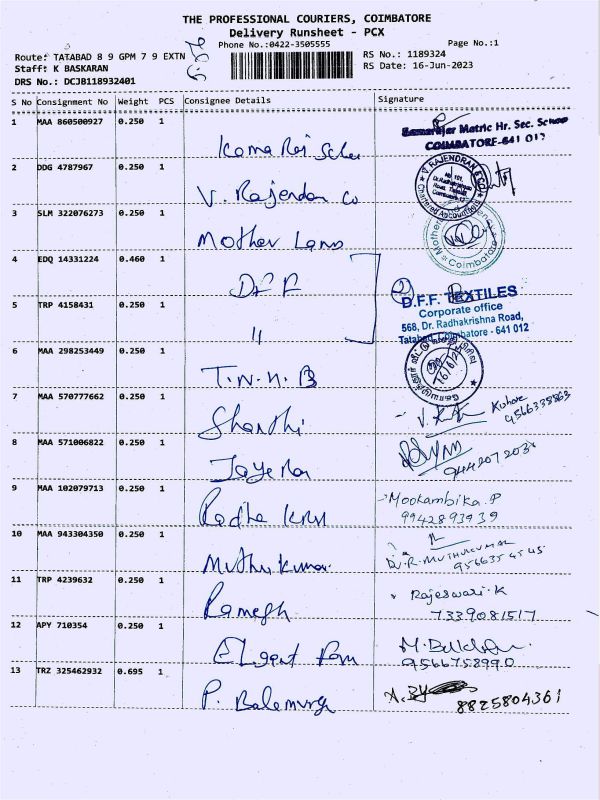 THE PROFESSIONAL COURIERS, COIMBATORE
Delivery Runsheet - PCX
Phone No.:0422-3505555
Page No.:1
Route: TATABAD 8 9 GPM 7 9 EXTN
RS No.: 1189324
Staff: K BASKARAN
RS Date: 16-Jun-2023
DRS No.: DCJB118932401
S No Consignment No Weight PCS Consignee Details Signature
1 MAA 860500927 0.250 1
Matric Hr. Sec. School
COIMBATORE-641 012
2 DDG 4787967 0.250 1 V. Rajendran Co
V. RAJENDRAN & CO
Chartered Accountants
3 SLM 322076273 0.250 1 Mother Land
Coimbatore
4 EDQ 14331224 0.460 1 DFF
D.F.F. TEXTILES
Corporate office
568, Dr. Radhakrishna Road,
Tatabad, Coimbatore - 641 012
5 TRP 4158431 0.250 1 "
6 MAA 298253449 0.250 1 T.N.H.B
7 MAA 570777662 0.250 1 Shanthi
Kishore
9566335863
8 MAA 571006822 0.250 1 Jaya Ram
9 MAA 102079713 0.250 1 Radha
Mookambika.P
9942893939
10 MAA 943304350 0.250 1 Muthu Kumar
Dr. R. MUTHUKUMAR
9566354545
11 TRP 4239632 0.250 1 Ramesh
Rajeswari.K
7339081517
12 APY 710354 0.250 1
9566758990
13 TRZ 325462932 0.695 1 P. Balamurg
8825804361